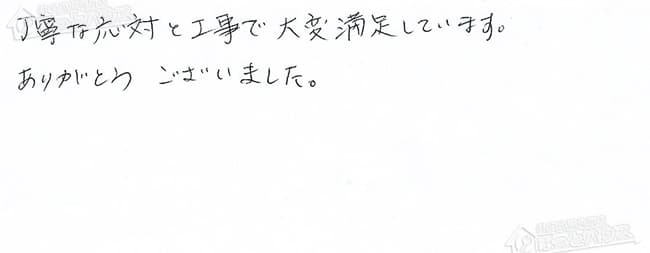 丁寧な応対と工事で大変満足しています。
ありがとう ございました。